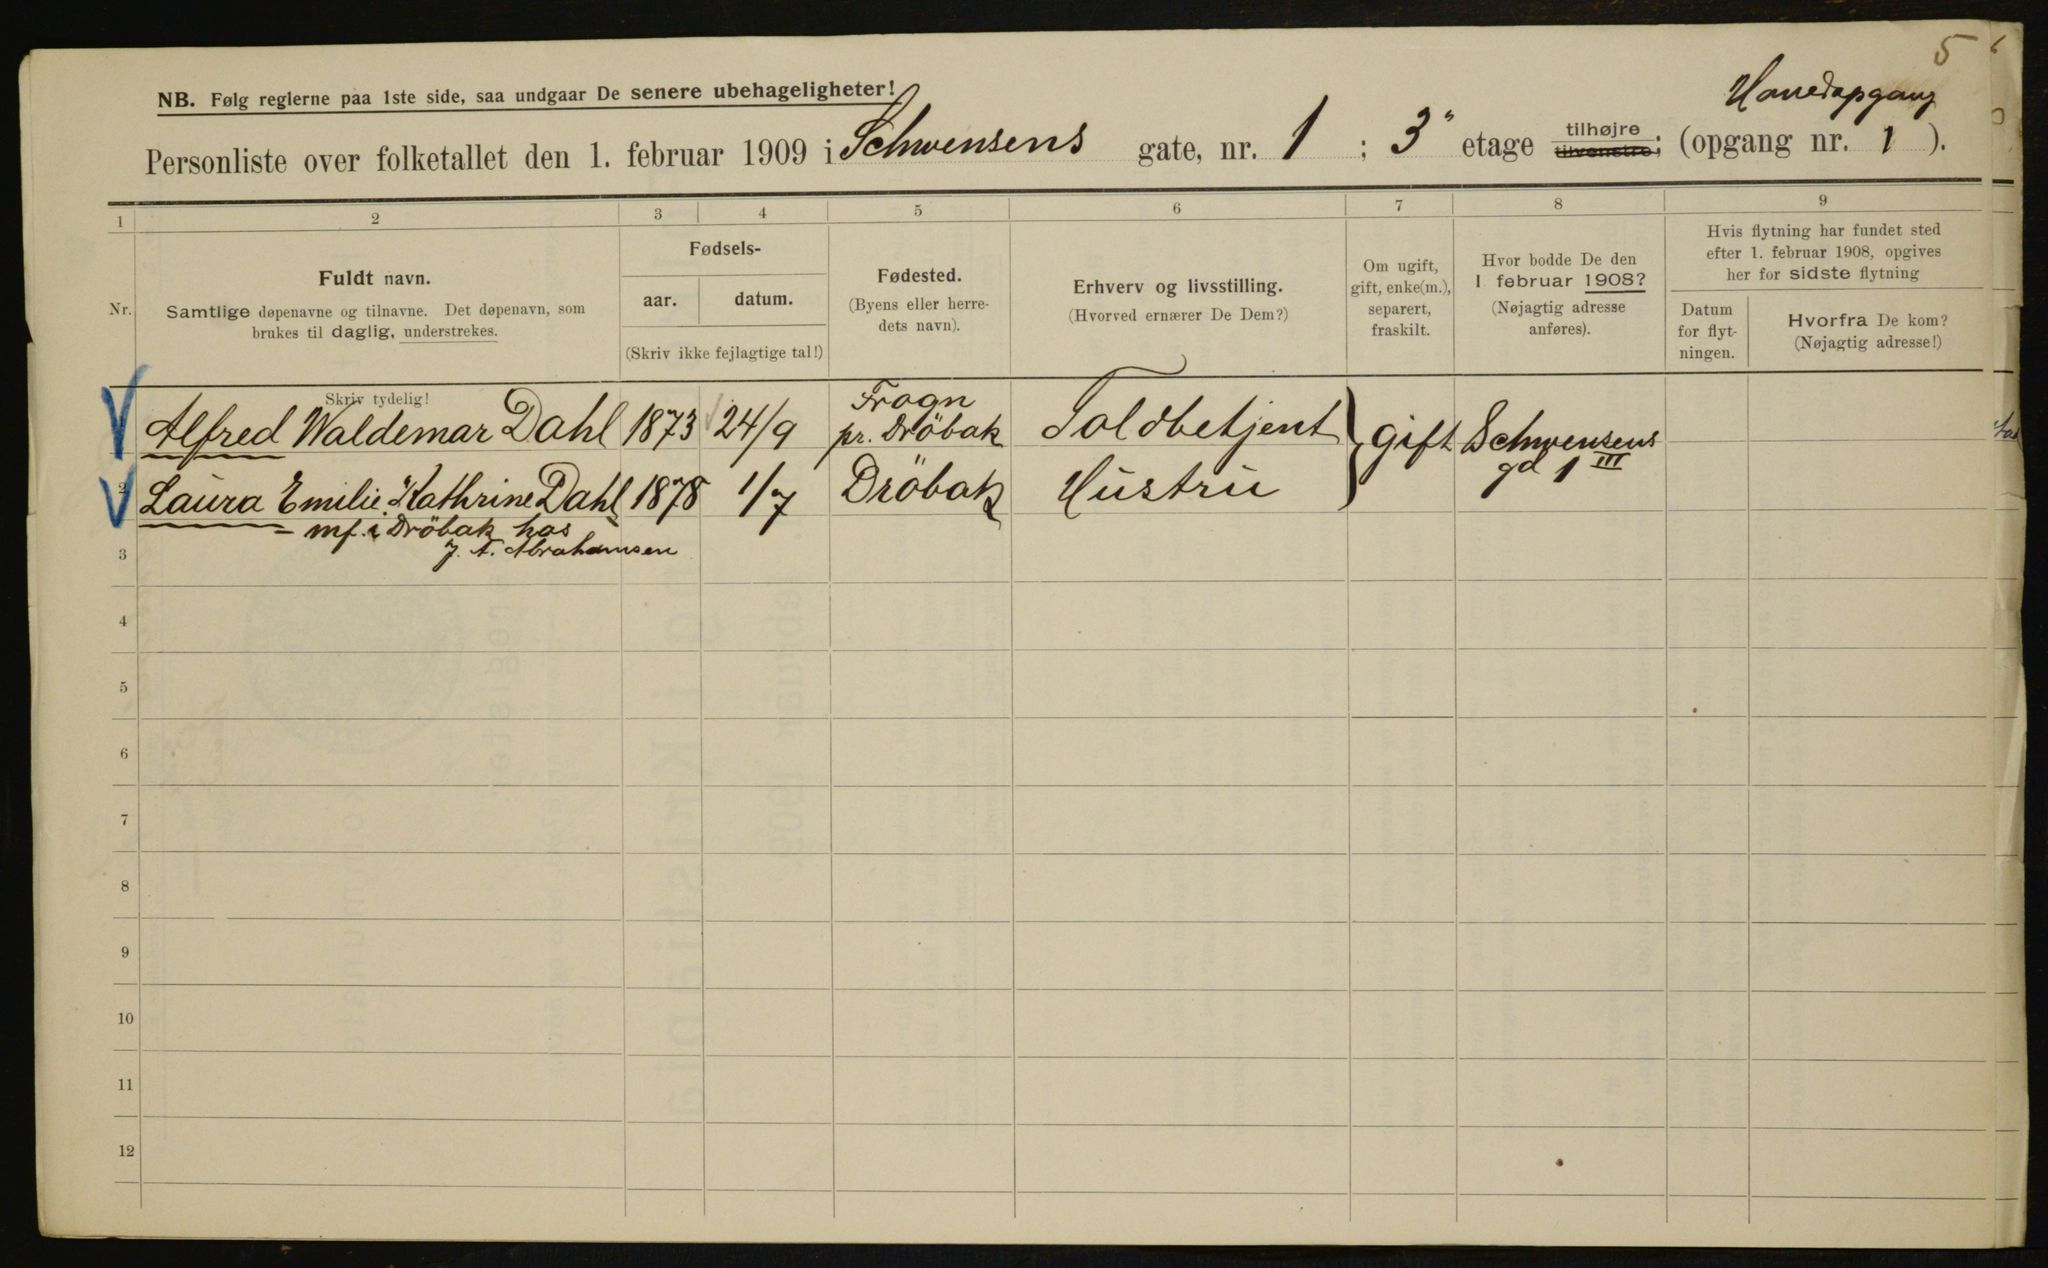 5
NB. Følg reglerne paa 1ste side, saa undgaar De senere ubehageligheter!
Personliste over folketallet den 1. februar 1909 i Schwensens gate, nr. 1 ; 3" etage tilhøjre tilvenstre; (opgang nr. 1 ).
1 2 3 4 5 6 7 8 9
Nr.
Fuldt navn.
Samtlige døpenavne og tilnavne. Det døpenavn, som
brukes til daglig, understrekes.
Fødsels-
aar. datum.
(Skriv ikke fejlagtige tal!)
Fødested.
(Byens eller herre-
dets navn).
Erhverv og livsstilling.
(Hvorved ernærer De Dem?)
Om ugift,
gift, enke(m.),
separert,
fraskilt.
Hvor bodde De den
1 februar 1908?
(Nøjagtig adresse
anføres).
Hvis flytning har fundet sted
efter 1. februar 1908, opgives
her for sidste flytning
Datum
for flyt-
ningen.
Hvorfra De kom?
(Nøjagtig adresse!)
Skriv tydelig!
Alfred Waldemar Dahl 1873 24/9 Frogn pr. Dröbak Toldbetjent gift Schwensens gd 1 III
2 Laura Emilie Kathrine Dahl 1878 1/7 Dröbak Hustru
mf. i Dröbak hos
J. A. Abrahamsen
3
4
5
6
7
8
9
10
11
12